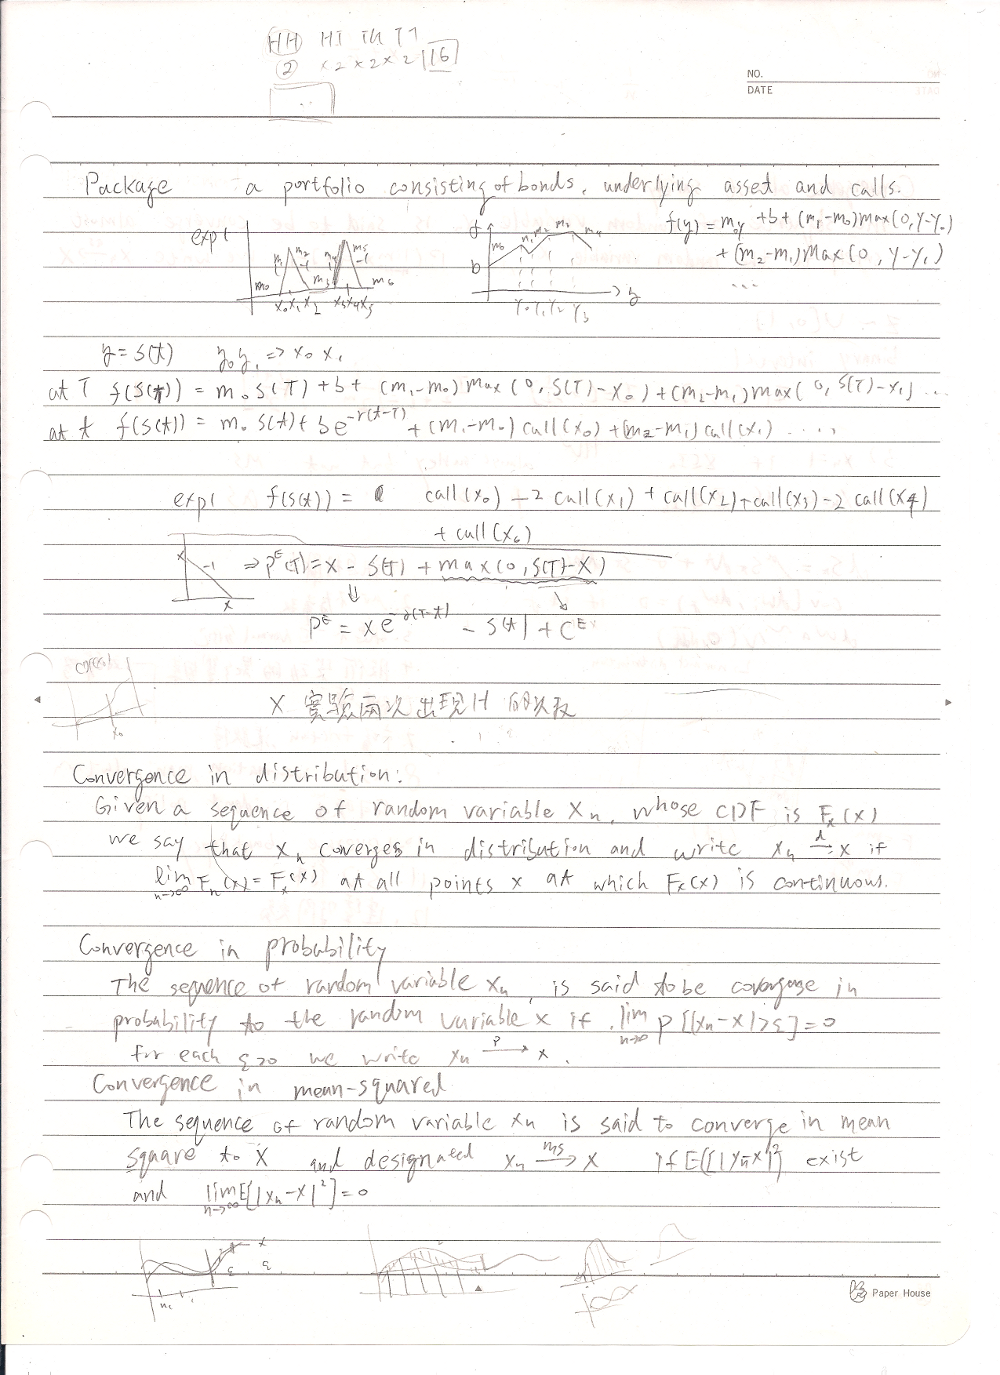 HH HT TH TT
② ×2×2×2 16
NO.
DATE
Package a portfolio consisting of bonds, underlying asset and calls.
f(y) = m₀y + b + (m₁-m₀)max(0, y-y₀)
exp1
+ (m₂-m₁)Max(0, y-y₁)
...
m₀ m₁ m₂ m₃ m₅ m₆
x₀ x₁ x₂ x₃ x₄ x₅
b m₀ m₁ m₂ m₃ m₄
y₀ y₁ y₂ y₃
y = S(t) y₀ y₁ => x₀ x₁
at T f(S(t)) = m₀ S(T) + b + (m₁-m₀) max(0, S(T)-x₀) + (m₂-m₁) max(0, S(T)-x₁) ...
at t f(S(t)) = m₀ S(t) + be^{-r(t-T)} + (m₁-m₀) call(x₀) + (m₂-m₁) call(x₁) .....
exp1 f(S(t)) = call(x₀) - 2 call(x₁) + call(x₂) + call(x₃) - 2 call(x₄)
+ call(x₆)
x -1 x
⇒ Pᴱ(T) = X - S(T) + max(0, S(T)-X)
Pᴱ = Xe^{-r(T-t)} - S(t) + Cᴱ
x₀
X 實驗兩次出現H的次數
Convergence in distribution:
Given a sequence of random variable Xn, whose CDF is Fx(x)
we say that Xn coverges in distribution and write Xn →d X if
lim n→∞ Fn(x) = Fx(x) at all points x at which Fx(x) is continuous.
Convergence in probability
The sequence of random variable Xn, is said to be coverguse in
probability to the random variable X if lim n→∞ P[|Xn-X|>ε]=0
for each ε>0 we write Xn →P X.
Convergence in mean-squared
The sequence of random variable Xn is said to converge in mean
square to X and designated Xn →ms X if E(|Xn-X|²) exist
and lim n→∞ E[|Xn-X|²]=0
x
ε ε
Paper House